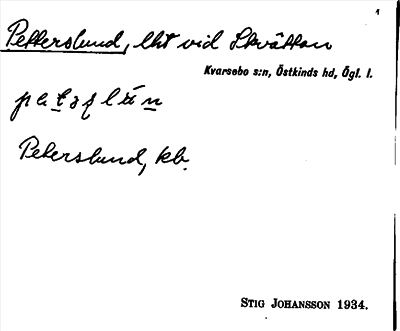 1
Petterslund, lht vid Skvättan
Kvarsebo s:n, Östkinds hd, Ögl. l.
Peterslund, kb.
STIG JOHANSSON 1934.